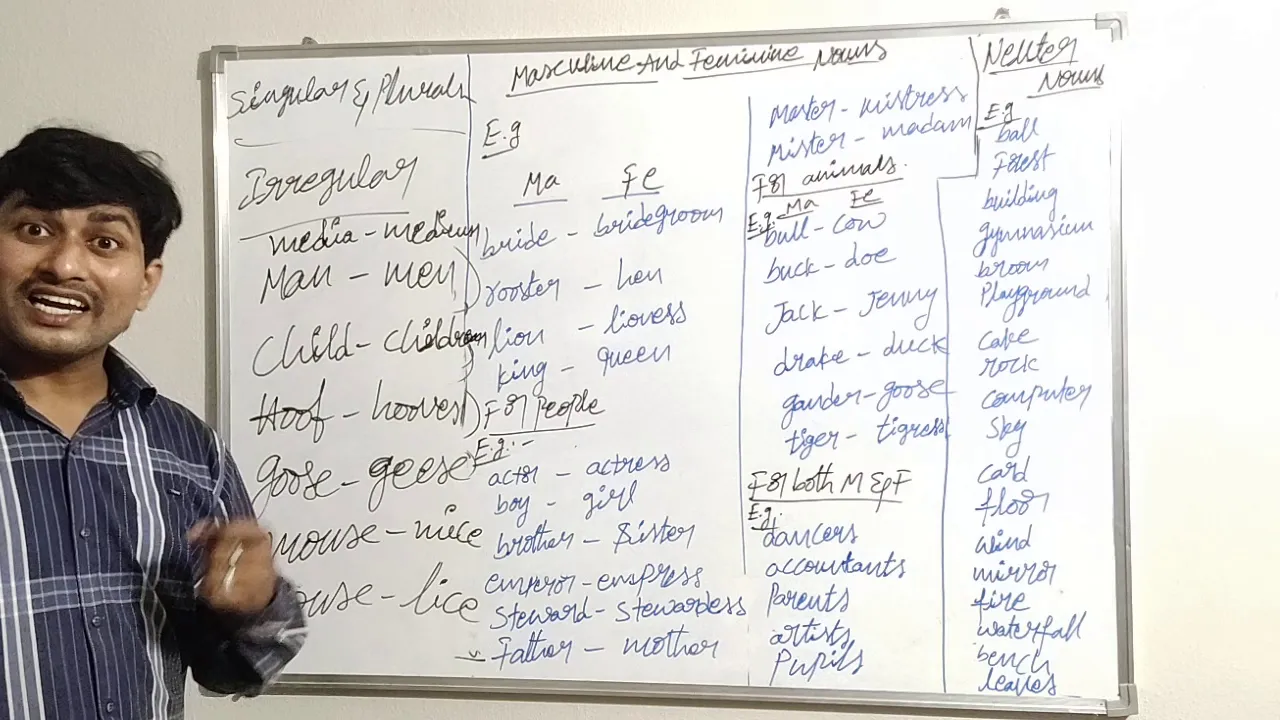 Singular & Plurals
Irregular
media - medium
Man - men
Child - children
Hoof - hooves
goose - geese
mouse - mice
ouse - lice
Masculine And Feminine Nouns
E.g
Ma Fe
bride - bridegroom
rooster - hen
lion - lioness
king - queen
For People
E.g:-
actor - actress
boy - girl
brother - Sister
emperor - empress
Steward - Stewardess
Father - mother
Master - mistress
Mister - madam
For animals.
E.g. Ma Fe
bull - cow
buck - doe
Jack - Jenny
drake - duck
gander - goose
tiger - tigress
For both M & F
E.g.
dancers
accountants
Parents
artists
Pupils
Neuter
Nouns
E.g
ball
Forest
building
gymnasium
broom
Playground
cake
rock
computer
Sky
card
floor
wind
mirror
fire
waterfall
bench
leaves